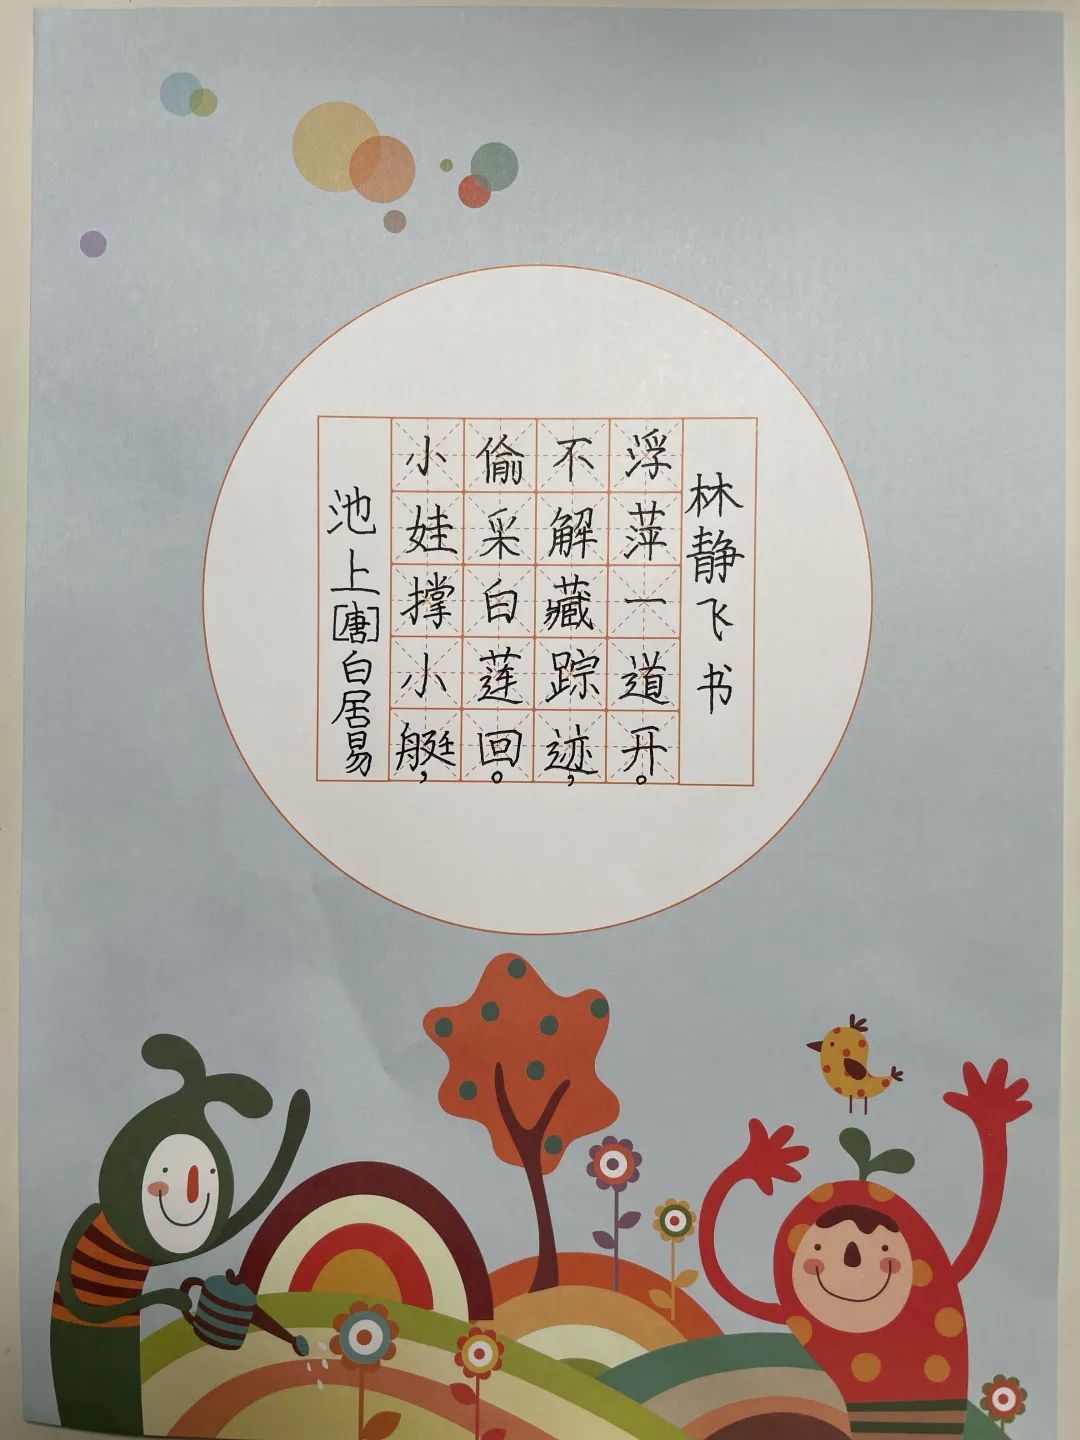 池上[唐]白居易
小娃撑小艇，
偷采白莲回。
不解藏踪迹，
浮萍一道开。
林静飞书